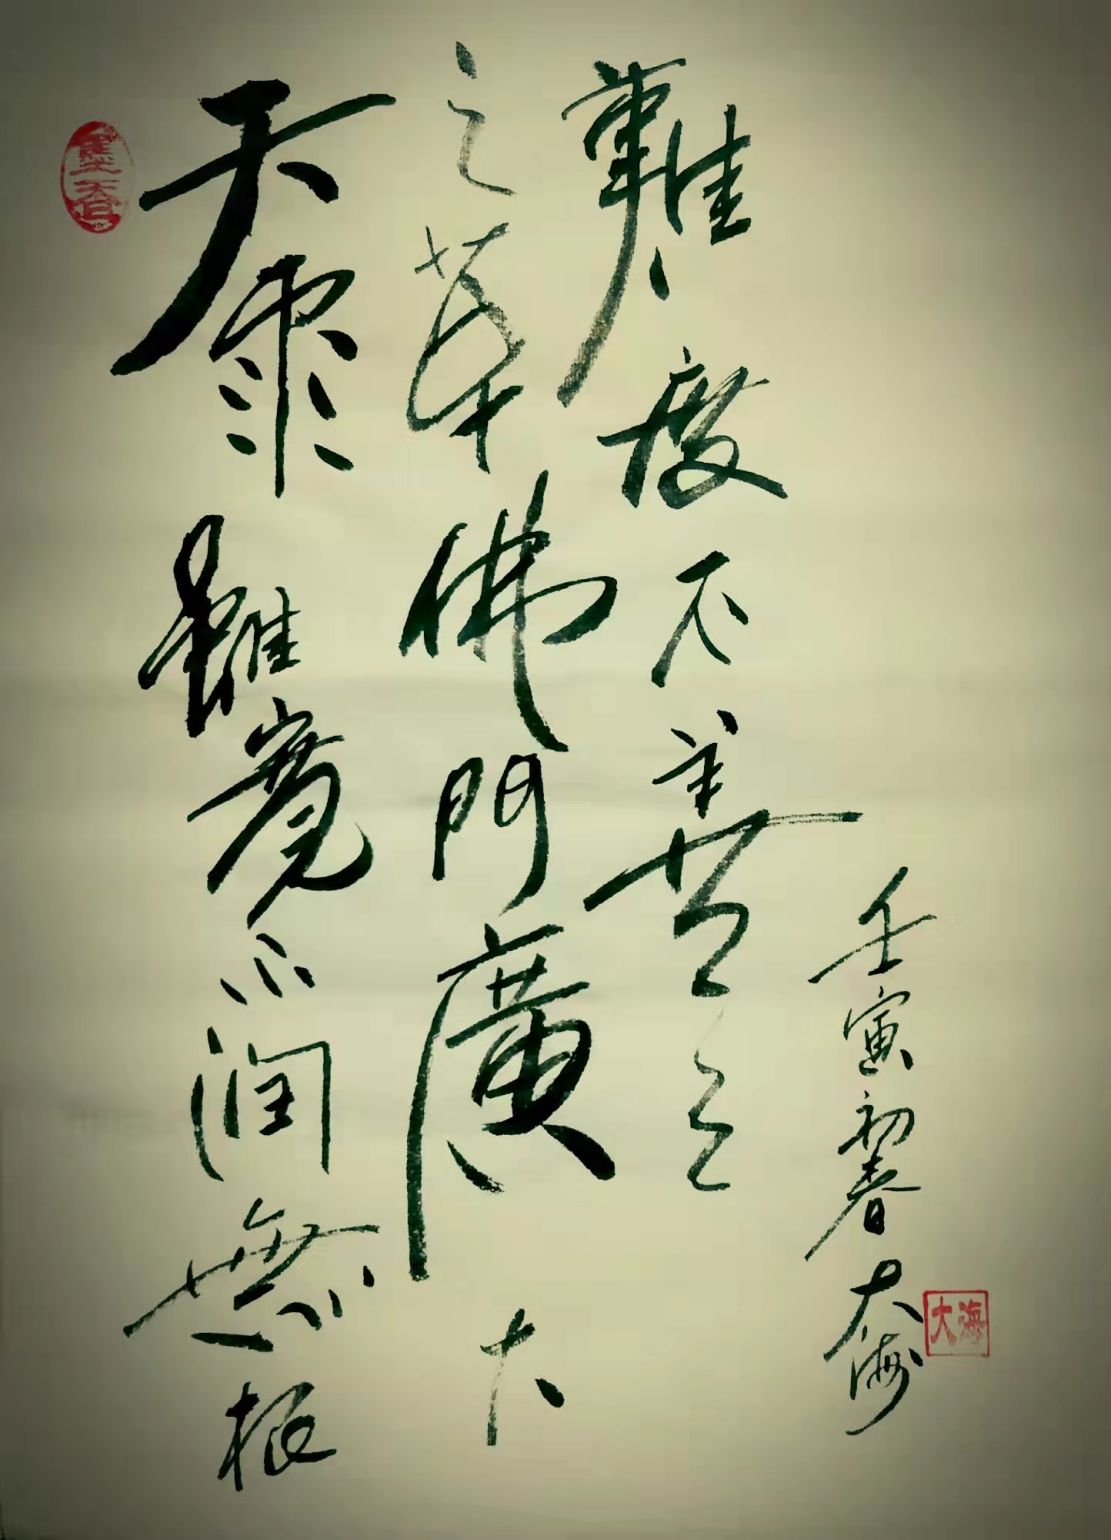 墨香
天雨雖寬不潤無根
之草佛門廣大
難度不善之
壬寅初春大海
大海